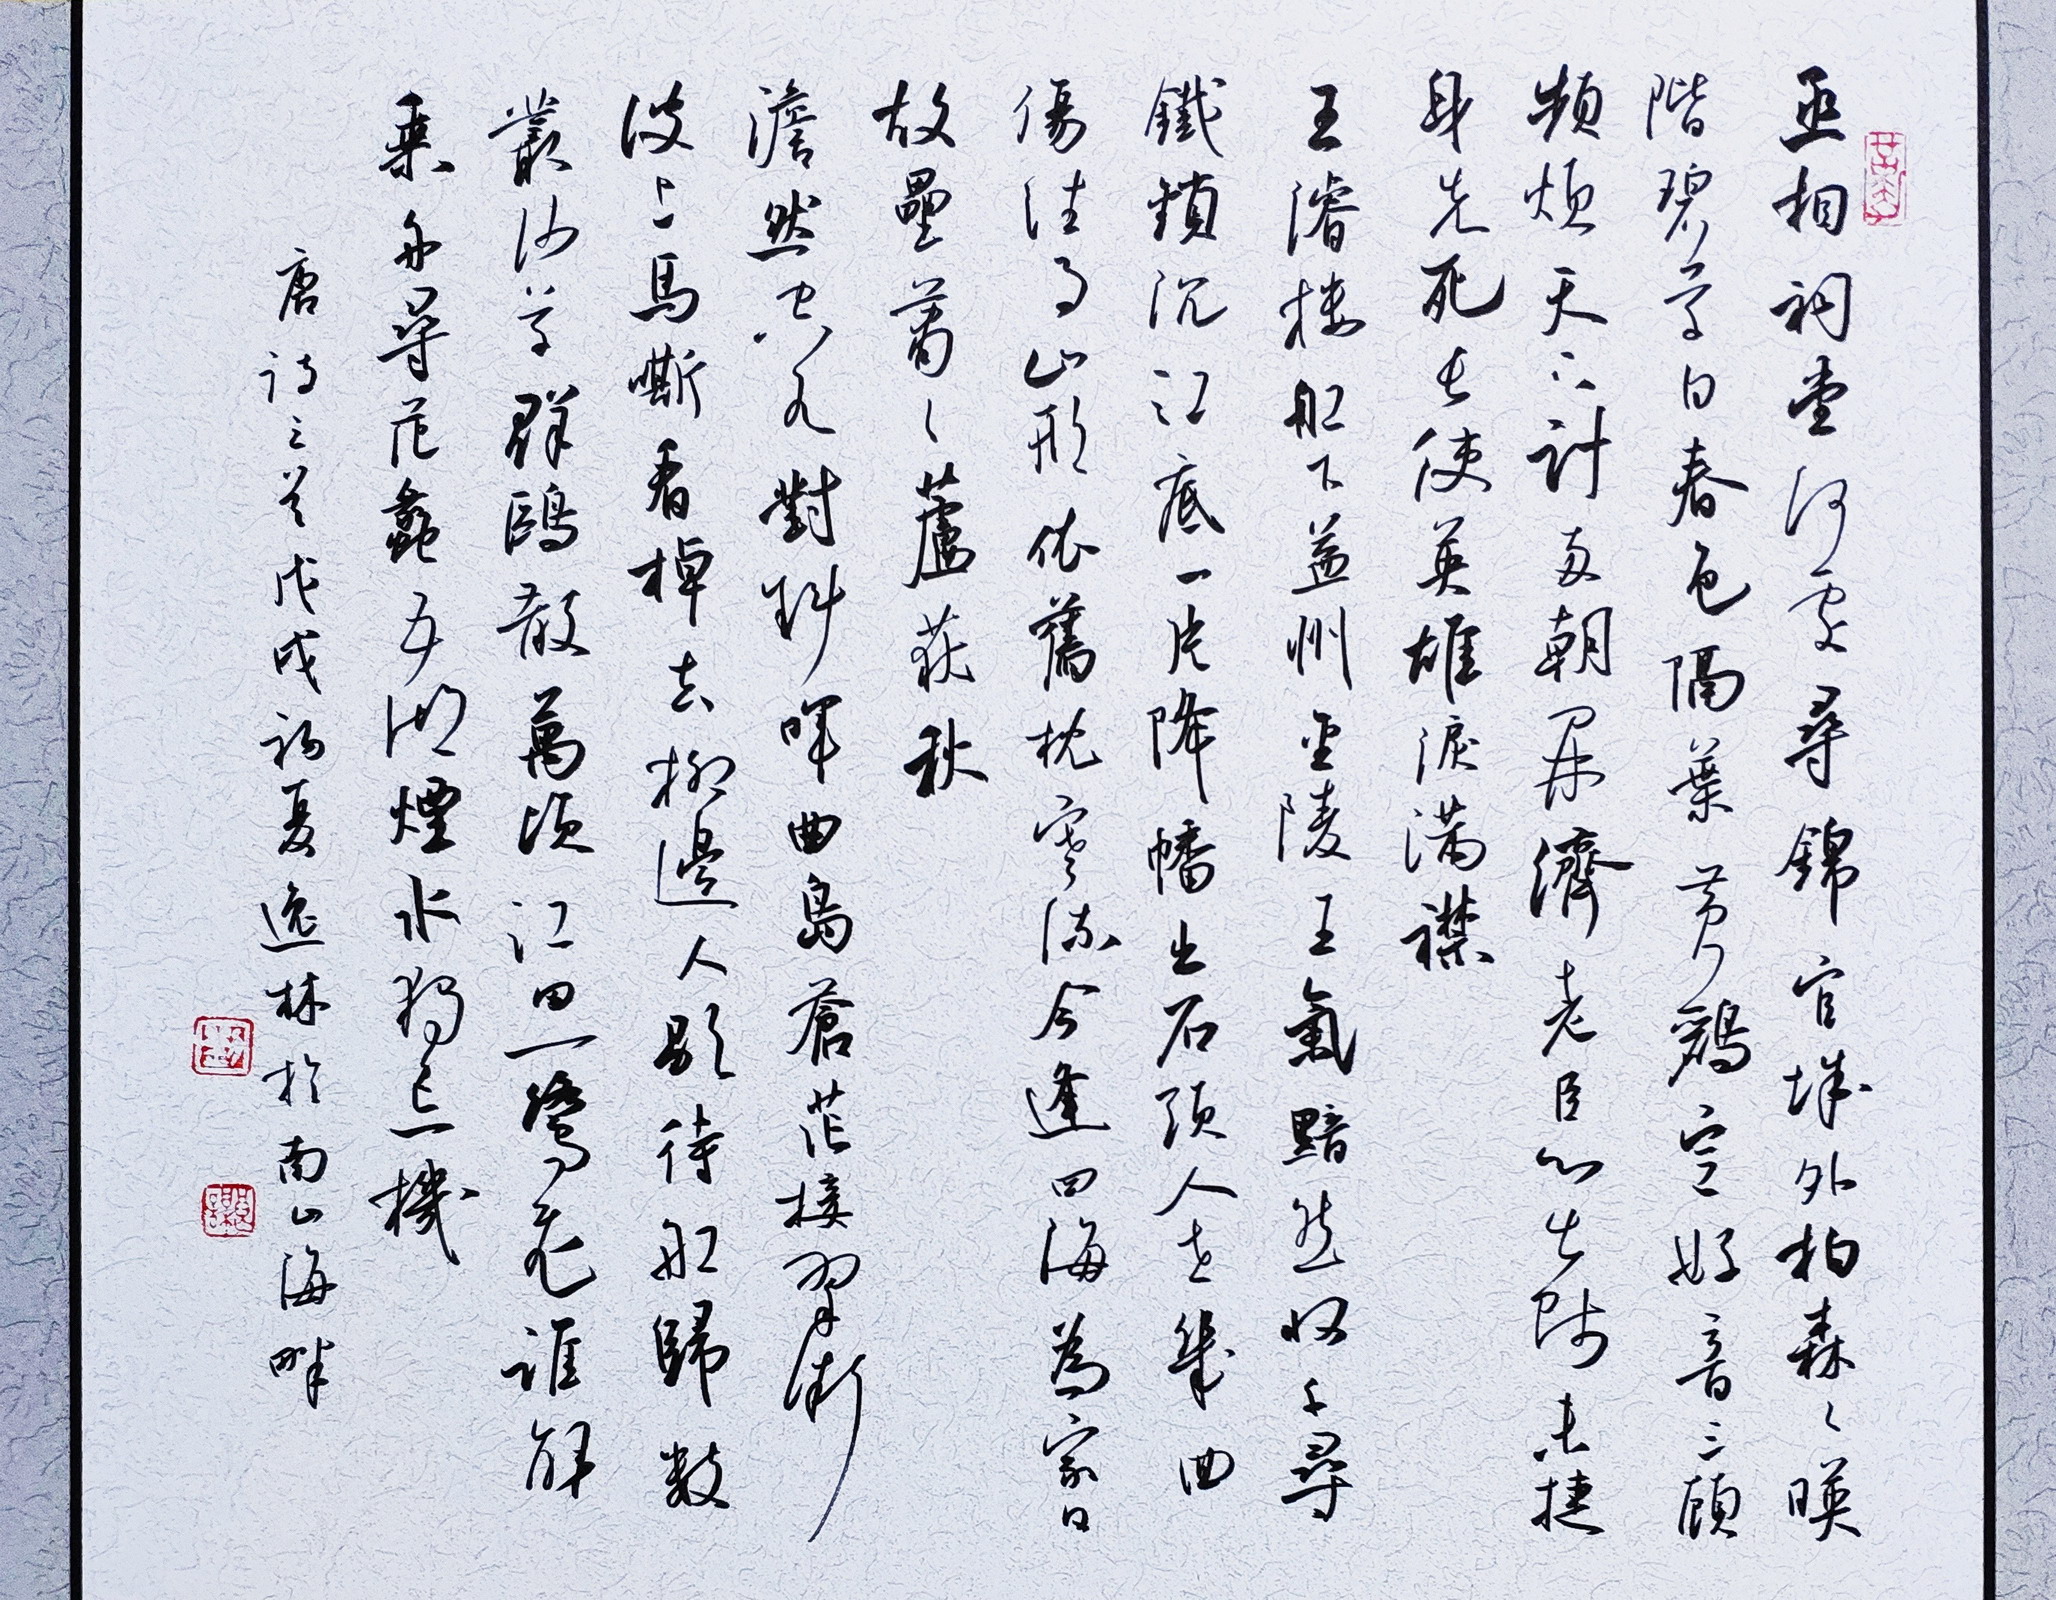 丞相祠堂何處尋錦官城外柏森〻暎
階碧草自春色隔葉黄鸝空好音三顧
頻煩天下計两朝開濟老臣心出師未捷
身先死長使英雄淚满襟
王濬楼船下益州金陵王氣黯然收千尋
鐵鎖沉江底一片降幡出石頭人世幾回
傷往事山形依舊枕寒流今逢四海為家日
故壘蕭〻蘆荻秋
澹然空水對斜暉曲島蒼茫接翠微
波上馬嘶看棹去柳邊人歇待船歸数
叢沙草群鷗散萬頃江田一鷺飛誰解
乘舟尋范蠡五湖煙水獨忘機
唐詩三首戊戌初夏逸林於南山海畔